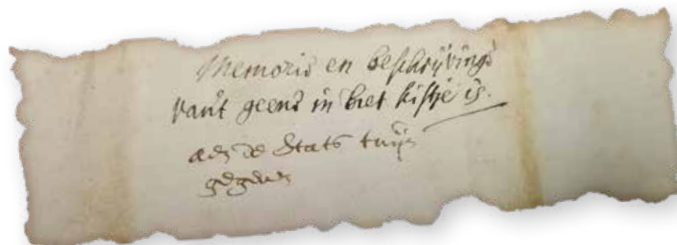 Memorie en beschrijvinge
vant geene in het kistje is.
aen de Stats tuijn
gegeven